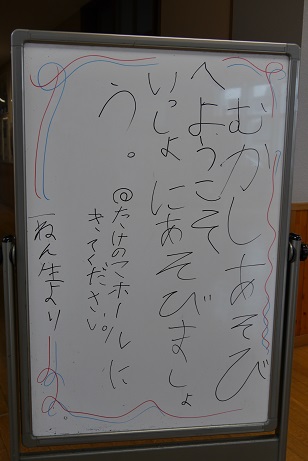 むかしあそび
へようこそ
いっしょにあそびましょ
う。
@たけのこホールに
きてください。
一ねん生より